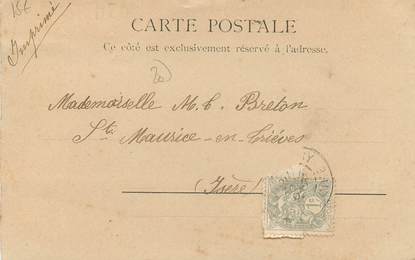 15€
Imprimé
CARTE POSTALE
Ce côté est exclusivement réservé à l'adresse.
20
Mademoiselle M. C. Breton
St. Maurice-en-Trièves
(Isère)
1